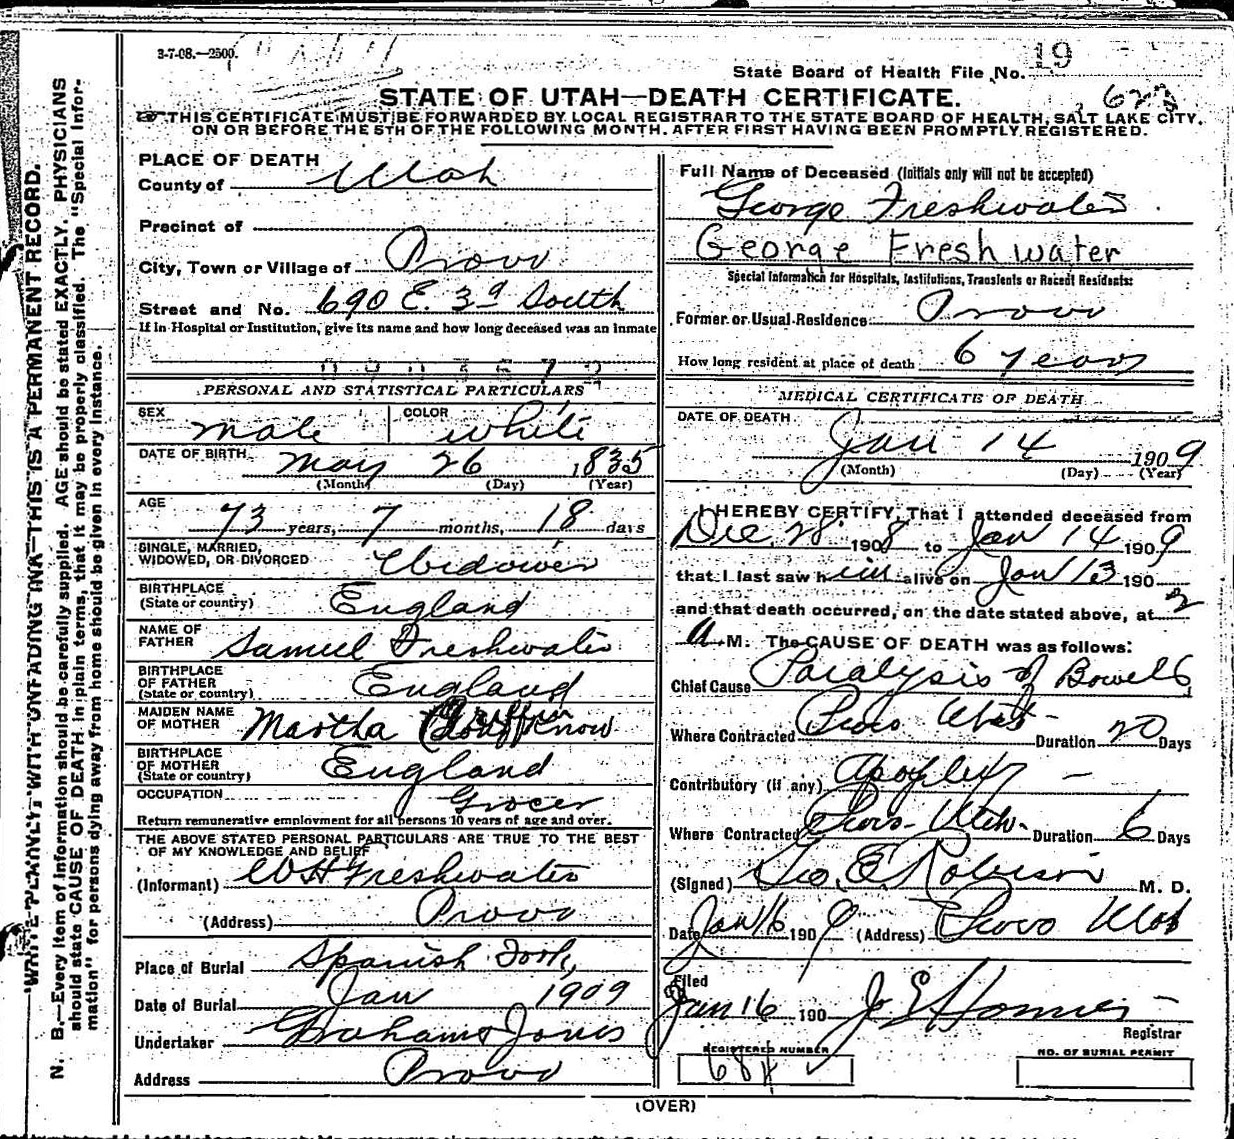 3-7-08.—2500.
State Board of Health File No. 19
STATE OF UTAH—DEATH CERTIFICATE.
THIS CERTIFICATE MUST BE FORWARDED BY LOCAL REGISTRAR TO THE STATE BOARD OF HEALTH, SALT LAKE CITY,
ON OR BEFORE THE 5TH OF THE FOLLOWING MONTH. AFTER FIRST HAVING BEEN PROMPTLY REGISTERED.
WRITE PLAINLY WITH UNFADING INK—THIS IS A PERMANENT RECORD.
N. B.—Every item of information should be carefully supplied. AGE should be stated EXACTLY. PHYSICIANS
should state CAUSE OF DEATH in plain terms, that it may be properly classified. The "Special Infor-
mation" for persons dying away from home should be given in every instance.
PLACE OF DEATH
County of Utah
Precinct of
City, Town or Village of Provo
Street and No. 690 E. 3d South
If in Hospital or Institution, give its name and how long deceased was an inmate
PERSONAL AND STATISTICAL PARTICULARS
SEX COLOR
Male White
DATE OF BIRTH May 26 1835
(Month) (Day) (Year)
AGE
73 years, 7 months, 18 days
SINGLE, MARRIED,
WIDOWED, OR DIVORCED Widower
BIRTHPLACE
(State or country) England
NAME OF
FATHER Samuel Freshwater
BIRTHPLACE
OF FATHER
(State or country) England
MAIDEN NAME
OF MOTHER Martha
BIRTHPLACE
OF MOTHER
(State or country) England
OCCUPATION Grocer
Return remunerative employment for all persons 10 years of age and over.
THE ABOVE STATED PERSONAL PARTICULARS ARE TRUE TO THE BEST
OF MY KNOWLEDGE AND BELIEF
(Informant) W H Freshwater
(Address) Provo
Place of Burial Spanish Fork,
Date of Burial Jan 1909
Undertaker Graham & Jones
Address Provo
Full Name of Deceased (Initials only will not be accepted)
George Freshwater
George Freshwater
Special Information for Hospitals, Institutions, Transients or Recent Residents:
Former or Usual Residence Provo
How long resident at place of death 6 years
MEDICAL CERTIFICATE OF DEATH
DATE OF DEATH
Jan 14 1909
(Month) (Day) (Year)
I HEREBY CERTIFY, That I attended deceased from
Dec 28 1908 to Jan 14 1909
that I last saw him alive on Jan 13 190
and that death occurred, on the date stated above, at 2
A M. The CAUSE OF DEATH was as follows:
Chief Cause Paralysis of Bowels
Where Contracted Provo Utah Duration 20 Days
Contributory (if any) Apoplexy —
Where Contracted Provo Utah. Duration 6 Days
(Signed) Geo. E. Robison M. D.
Date Jan 16 1909 (Address) Provo Utah
Filed
Jan 16 190
Registrar
REGISTERED NUMBER
NO. OF BURIAL PERMIT
(OVER)